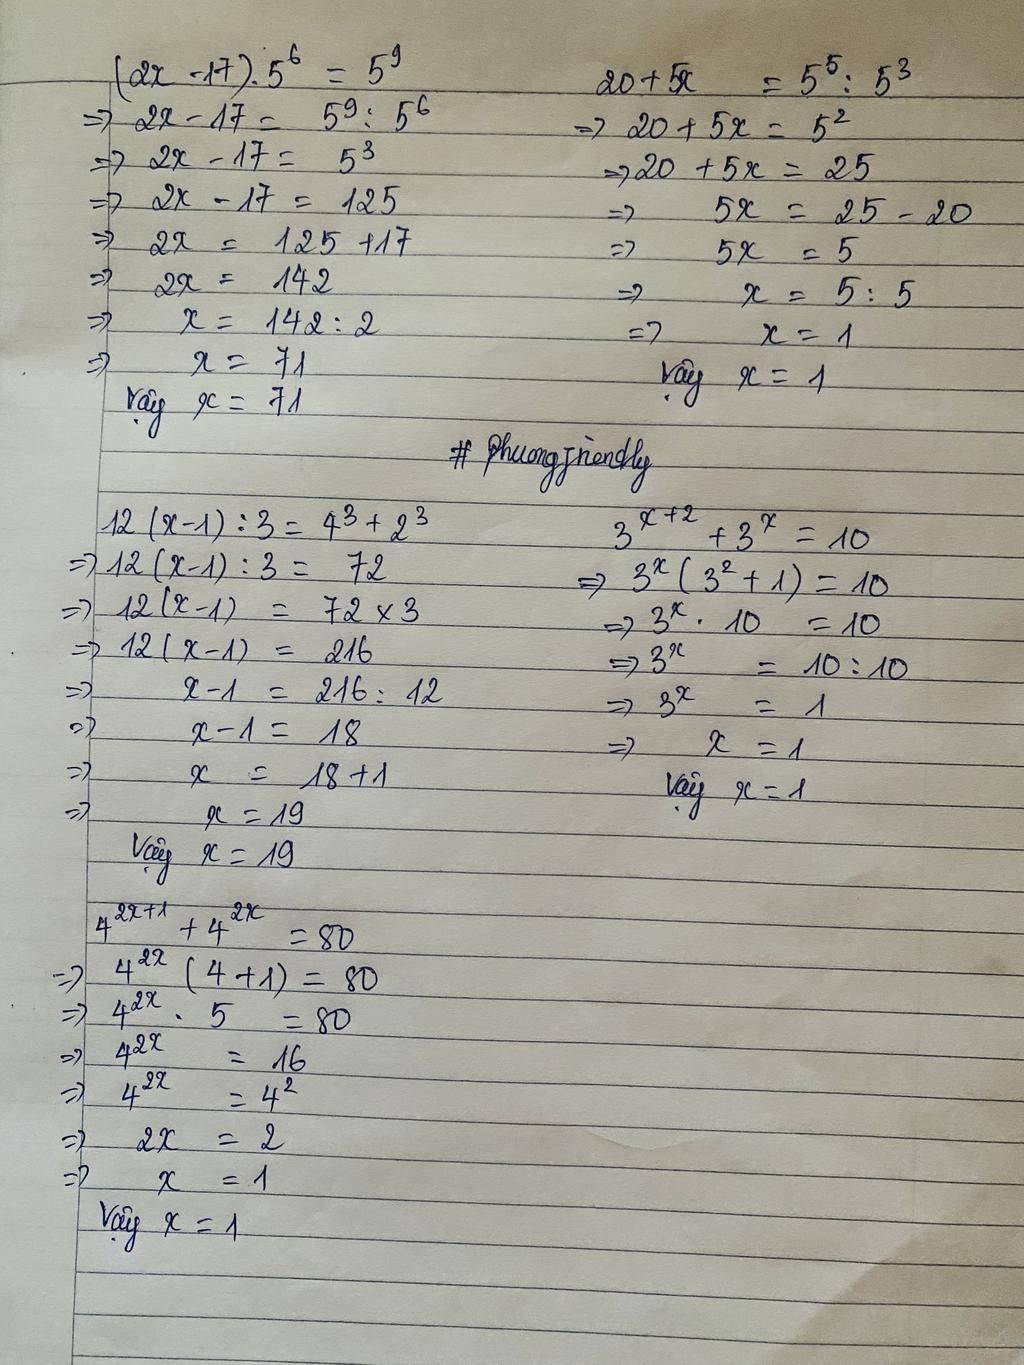 (2x - 17) . 5⁶ = 5⁹
=> 2x - 17 = 5⁹ : 5⁶
=> 2x - 17 = 5³
=> 2x - 17 = 125
=> 2x = 125 + 17
=> 2x = 142
=> x = 142 : 2
=> x = 71
Vậy x = 71
20 + 5x = 5⁵ : 5³
=> 20 + 5x = 5²
=> 20 + 5x = 25
=> 5x = 25 - 20
=> 5x = 5
=> x = 5 : 5
=> x = 1
Vậy x = 1
# phuongfriendly
12 (x - 1) : 3 = 4³ + 2³
=> 12 (x - 1) : 3 = 72
=> 12 (x - 1) = 72 x 3
=> 12 (x - 1) = 216
=> x - 1 = 216 : 12
=> x - 1 = 18
=> x = 18 + 1
=> x = 19
Vậy x = 19
3ˣ⁺² + 3ˣ = 10
=> 3ˣ (3² + 1) = 10
=> 3ˣ . 10 = 10
=> 3ˣ = 10 : 10
=> 3ˣ = 1
=> x = 1
Vậy x = 1
4²ˣ⁺¹ + 4²ˣ = 80
=> 4²ˣ (4 + 1) = 80
=> 4²ˣ . 5 = 80
=> 4²ˣ = 16
=> 4²ˣ = 4²
=> 2x = 2
=> x = 1
Vậy x = 1